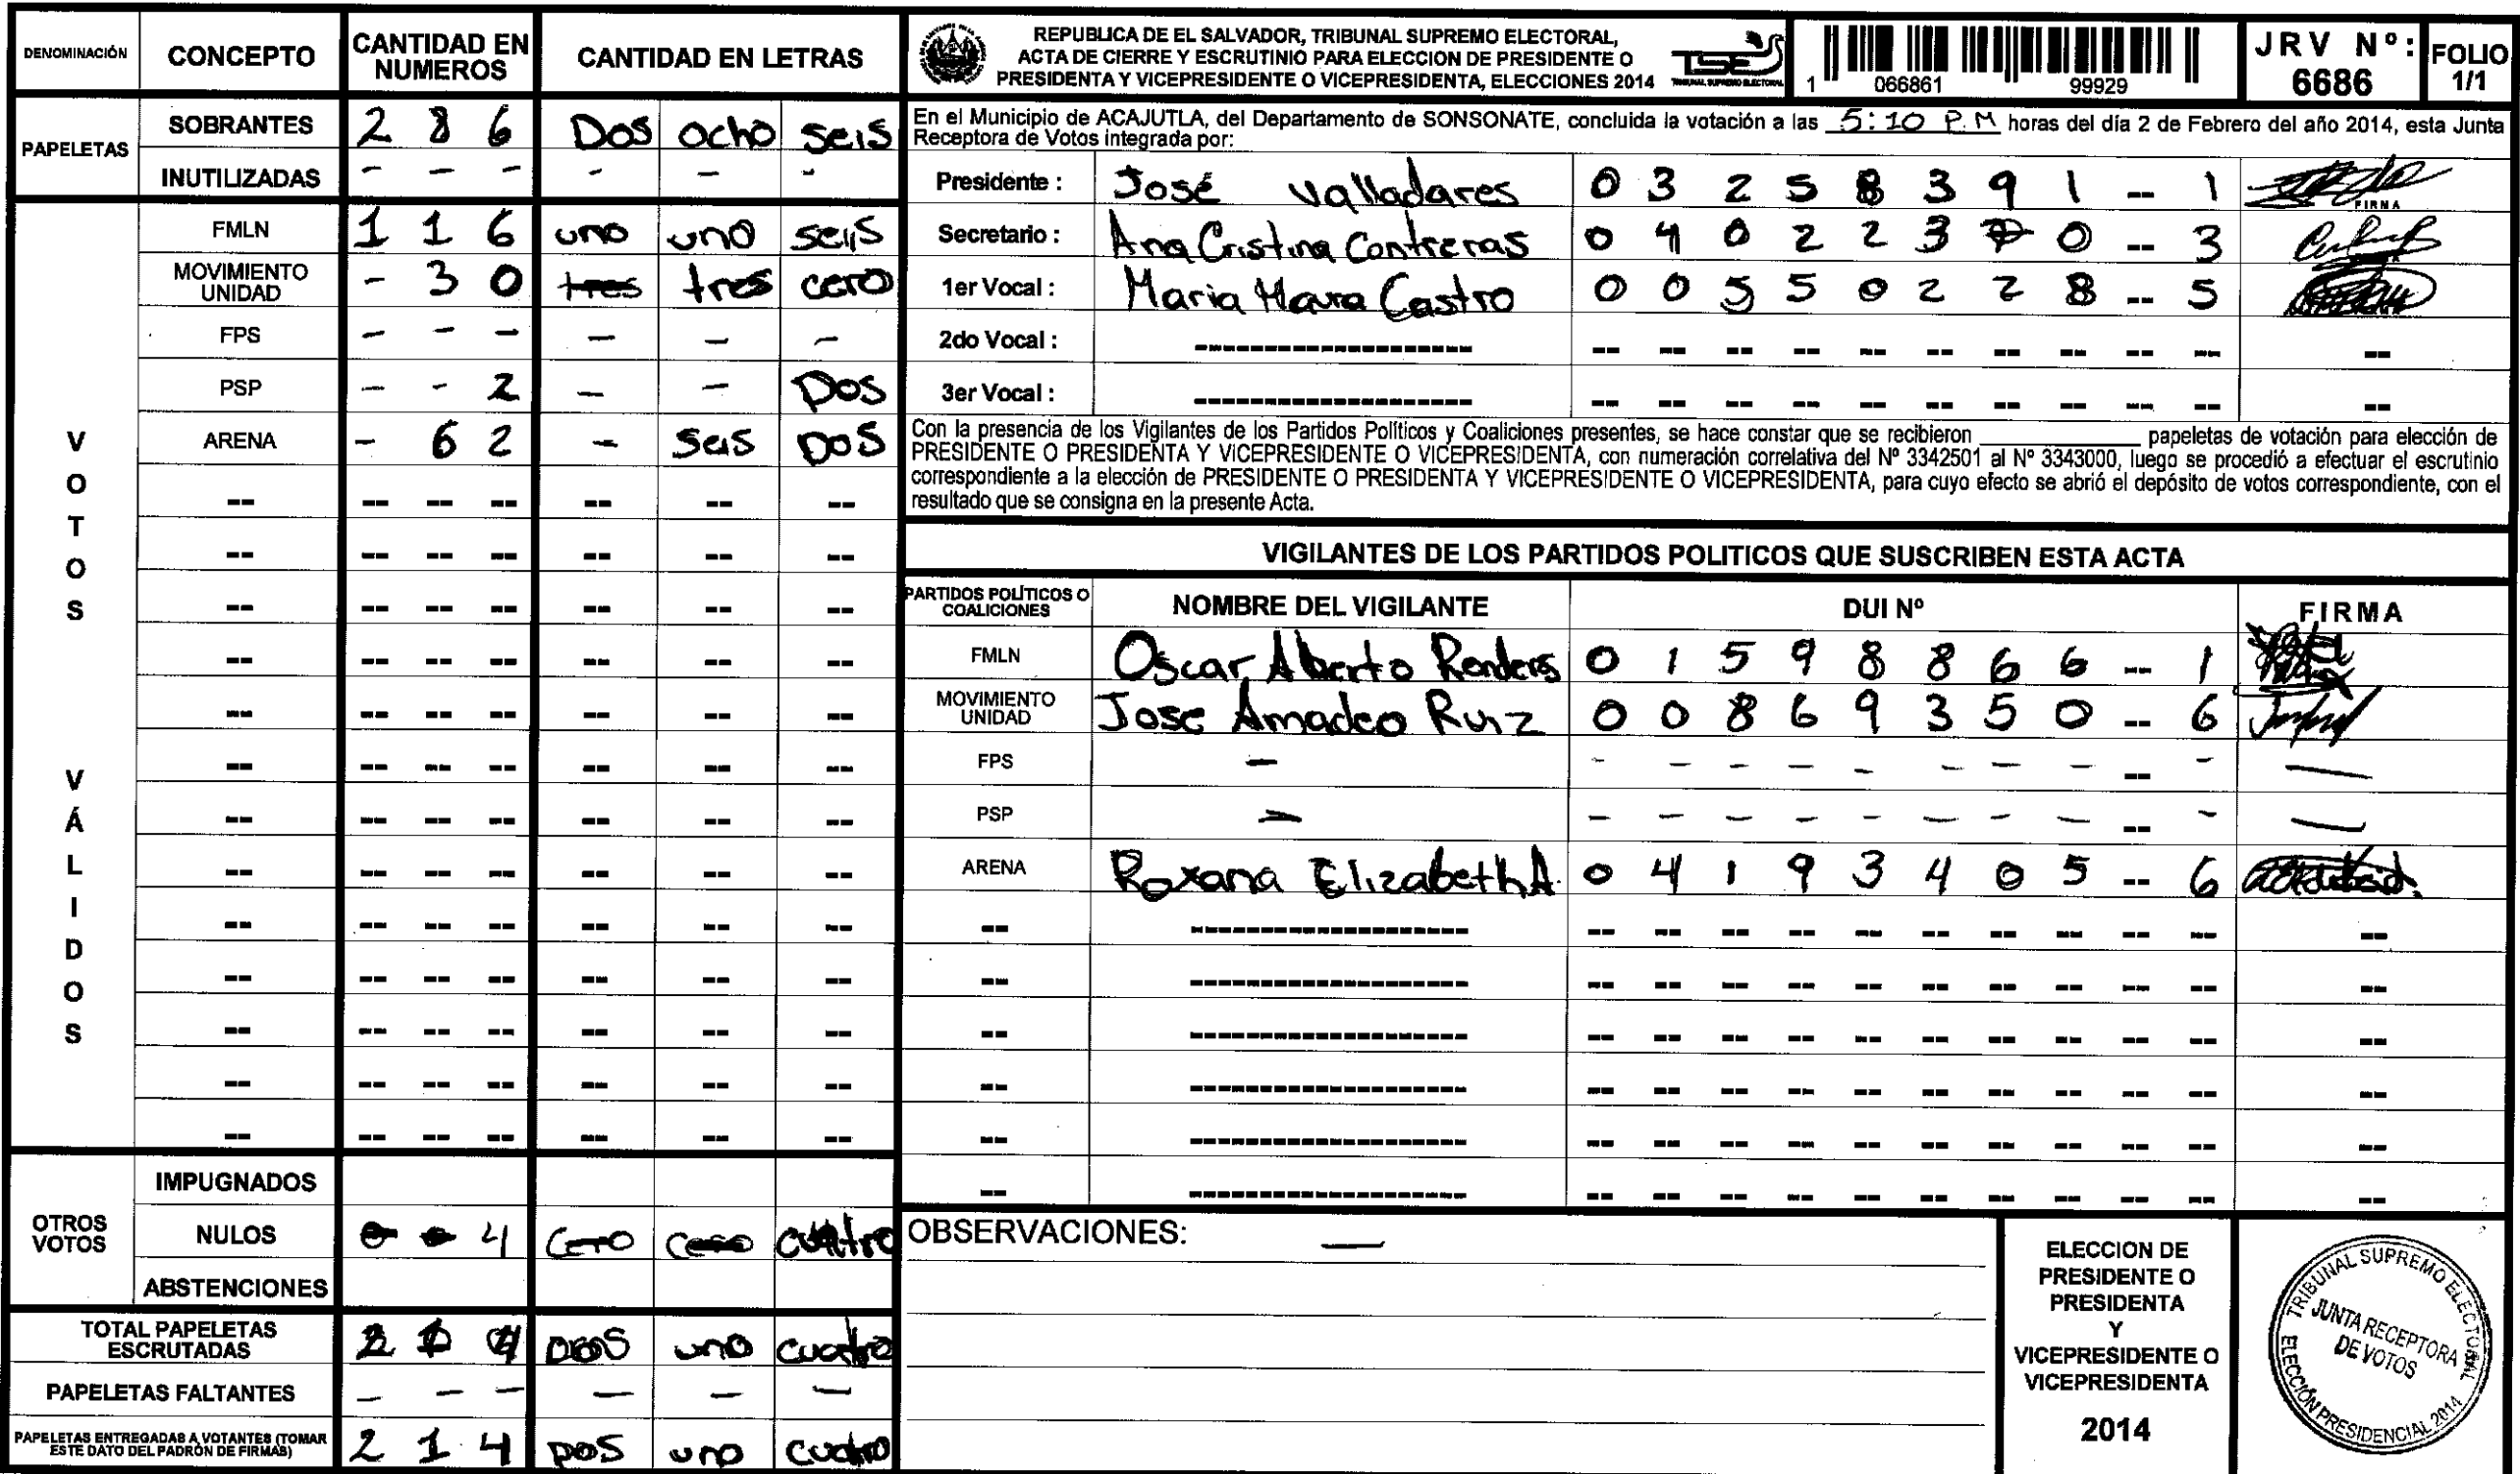 DENOMINACIÓN CONCEPTO CANTIDAD EN NUMEROS CANTIDAD EN LETRAS
PAPELETAS
SOBRANTES 2 8 6 Dos ocho seis
INUTILIZADAS - - - - - -
VOTOS VÁLIDOS
FMLN 1 1 6 uno uno seis
MOVIMIENTO UNIDAD - 3 0 tres tres cero
FPS - - - - - -
PSP - - 2 - - Dos
ARENA - 6 2 - seis DOS
OTROS VOTOS
IMPUGNADOS
NULOS 0 0 4 cero cero cuatro
ABSTENCIONES
TOTAL PAPELETAS ESCRUTADAS 2 1 4 DOS uno cuatro
PAPELETAS FALTANTES - - - - - -
PAPELETAS ENTREGADAS A VOTANTES (TOMAR ESTE DATO DEL PADRÓN DE FIRMAS) 2 1 4 DOS uno cuatro
REPUBLICA DE EL SALVADOR, TRIBUNAL SUPREMO ELECTORAL,
ACTA DE CIERRE Y ESCRUTINIO PARA ELECCION DE PRESIDENTE O
PRESIDENTA Y VICEPRESIDENTE O VICEPRESIDENTA, ELECCIONES 2014
TSE
TRIBUNAL SUPREMO ELECTORAL
1 066861 99929
JRV Nº: 6686
FOLIO 1/1
En el Municipio de ACAJUTLA, del Departamento de SONSONATE, concluida la votación a las 5:10 P.M horas del día 2 de Febrero del año 2014, esta Junta
Receptora de Votos integrada por:
Presidente : José Valladares 0 3 2 5 8 3 9 1 -- 1
FIRMA
Secretario : Ana Cristina Contreras 0 4 0 2 2 3 7 0 -- 3
1er Vocal : Maria Castro 0 0 5 5 0 2 2 8 -- 5
2do Vocal :
3er Vocal :
Con la presencia de los Vigilantes de los Partidos Políticos y Coaliciones presentes, se hace constar que se recibieron ________ papeletas de votación para elección de
PRESIDENTE O PRESIDENTA Y VICEPRESIDENTE O VICEPRESIDENTA, con numeración correlativa del Nº 3342501 al Nº 3343000, luego se procedió a efectuar el escrutinio
correspondiente a la elección de PRESIDENTE O PRESIDENTA Y VICEPRESIDENTE O VICEPRESIDENTA, para cuyo efecto se abrió el depósito de votos correspondiente, con el
resultado que se consigna en la presente Acta.
VIGILANTES DE LOS PARTIDOS POLITICOS QUE SUSCRIBEN ESTA ACTA
PARTIDOS POLÍTICOS O COALICIONES NOMBRE DEL VIGILANTE DUI Nº FIRMA
FMLN Oscar Alberto 0 1 5 9 8 8 6 6 -- 1
MOVIMIENTO UNIDAD Jose Amadeo Ruiz 0 0 8 6 9 3 5 0 -- 6
FPS - - - - - - - - - -- - -
PSP - - - - - - - - - -- - -
ARENA Roxana Elizabeth A. 0 4 1 9 3 4 0 5 -- 6
OBSERVACIONES: —
ELECCION DE
PRESIDENTE O
PRESIDENTA
Y
VICEPRESIDENTE O
VICEPRESIDENTA
2014
TRIBUNAL SUPREMO ELECTORAL
JUNTA RECEPTORA
DE VOTOS
ELECCIÓN PRESIDENCIAL 2014